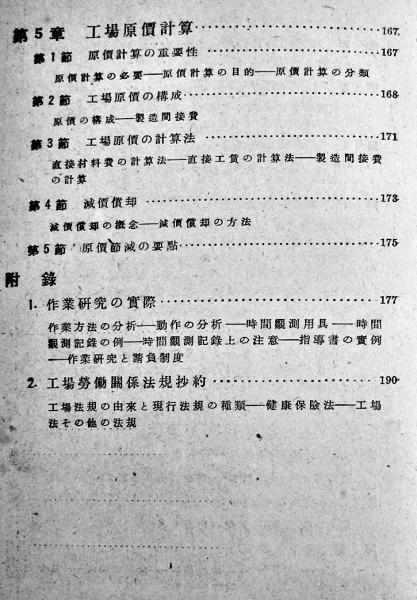 第5章 工場原價計算 167
第1節 原價計算の重要性 167
原價計算の必要──原價計算の目的──原價計算の分類
第2節 工場原價の構成 168
原價の構成──製造間接費
第3節 工場原價の計算法 171
直接材料費の計算法──直接工賃の計算法──製造間接費
の計算
第4節 減價償却 173
減價償却の概念──減價償却の方法
第5節 原價節減の要點 175
附錄
1. 作業研究の實際 177
作業方法の分析──動作の分析──時間觀測用具──時間
觀測記錄の例──時間觀測記錄上の注意──指導書の實例
──作業研究と請負制度
2. 工場勞働關係法規抄約 190
工場法規の由來と現行法規の種類──健康保險法──工場
法その他の法規